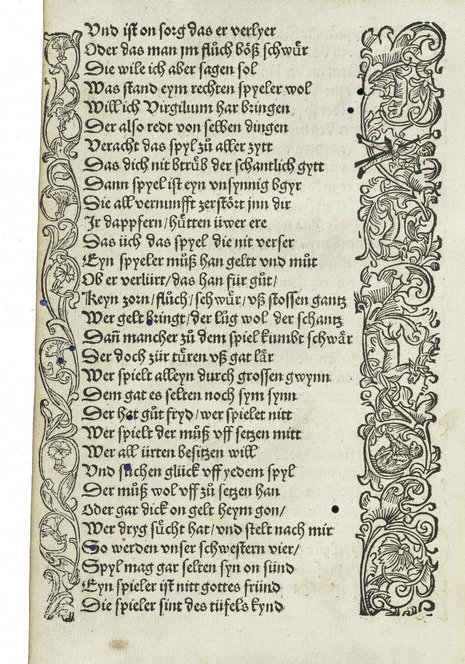 Vnd ist on sorg das er verlyer
Oder das man jm flůch bőß schwůr
Die wile ich aber sagen sol
Was stand eym rechten spyeler wol
Will ich Virgilium har bringen
Der also redt von selben dingen
Veracht das spyl zů aller zytt
Das dich nit btrůb der schantlich gytt
Dann spyel ist eyn vnsynnig bgyr
Die all vernunfft zerstőrt jnn dir
Ir dappfern / hůtten üwer ere
Das üch das spyel die nit verser
Eyn spyeler můß han gelt vnd můt
Ob er verlürt / das han für gůt /
Keyn zorn / flůch / schwůr / vß stossen gantz
Wer gelt bringt / der lůg wol der schantz
Dañ mancher zů dem spiel kumbt schwår
Der doch zür türen vß gat lår
Wer spielt alleyn durch grossen gwynn
Dem gat es selten noch sym synn
Der hat gůt fryd / wer spielet nitt
Wer spielt der můß vff setzen mitt
Wer all ürten besitzen will
Vnd sůchen glück vff yedem spyl
Der můß wol vff zů setzen han
Oder gar dick on gelt heym gon /
Wer dryg sůcht hat / vnd stelt nach mir
So werden vnser schwestern vier /
Spyl mag gar selten syn on sünd
Eyn spieler ist nitt gottes fründ
Die spieler sint des tüfels kynd